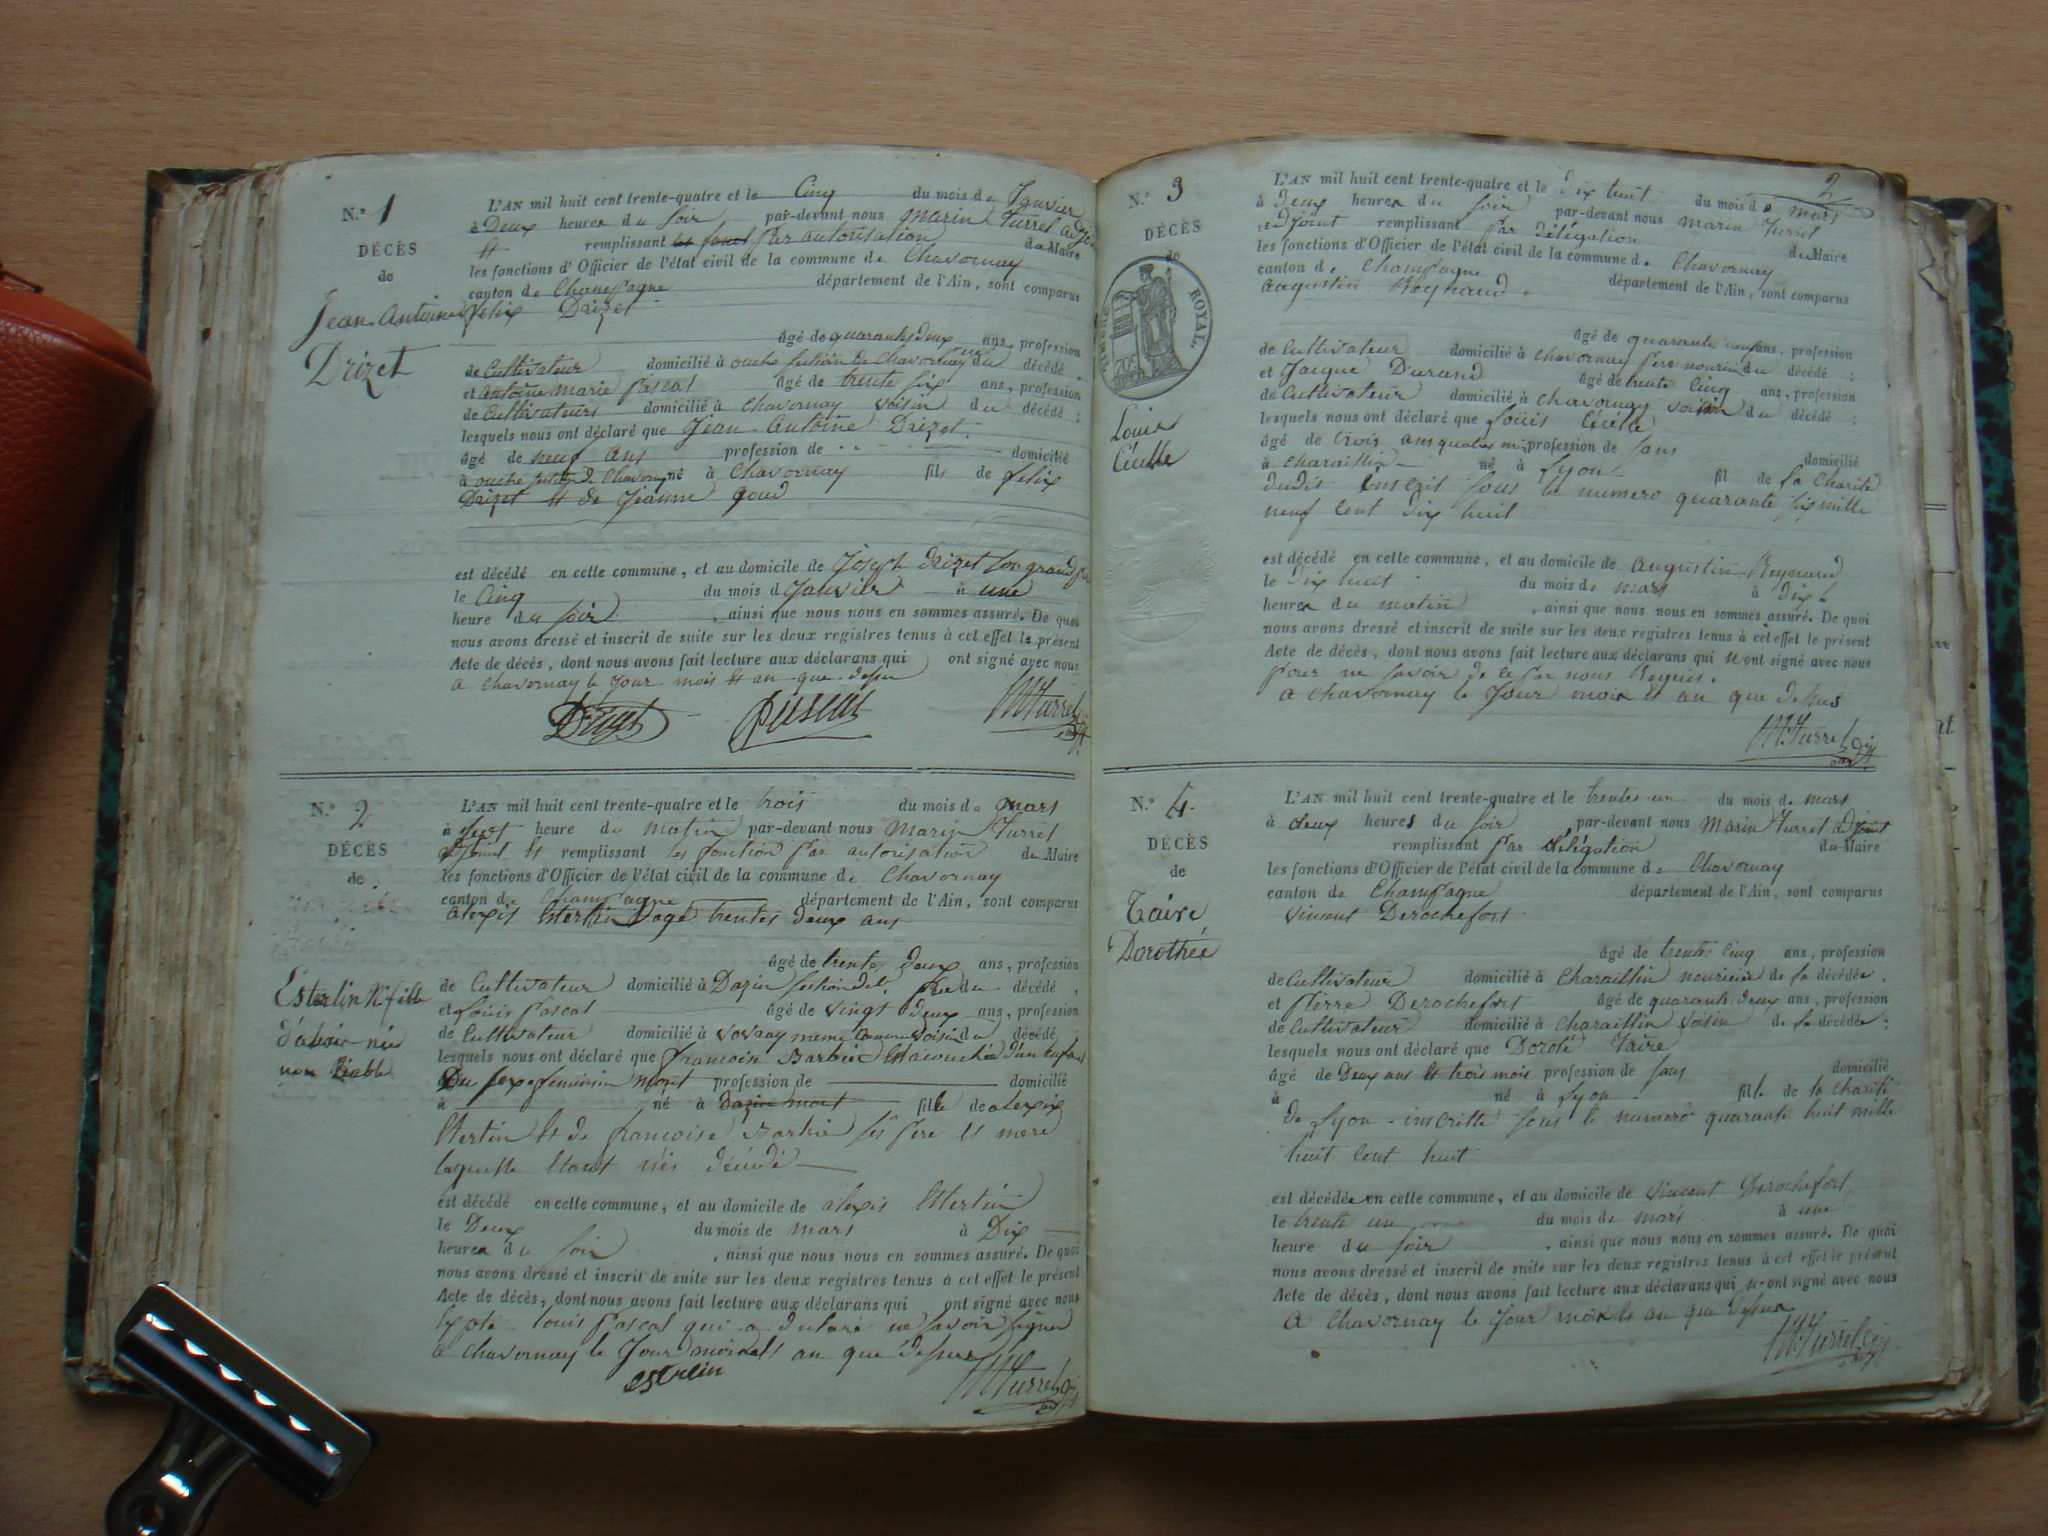 N.º 1
DÉCÈS
de
Jean-Antoine
Drizet
L'AN mil huit cent trente-quatre et le Cinq du mois de Janvier
à Deux heures du soir par-devant nous Marin Turrel adjoint
remplissant les fonct par autorisation du Maire
les fonctions d'Officier de l'état civil de la commune de Chavornay
canton de Champagne département de l'Ain, sont comparus
felix Drizet
âgé de quarante deux ans, profession
de Cultivateur domicilié à ouche section de Chavornay du décédé
et antoine marie pascal âgé de trente six ans, profession
de Cultivateurs domicilié à Chavornay voisin du décédé ;
lesquels nous ont déclaré que Jean Antoine Drizet
âgé de neuf ans profession de domicilié
à ouche né à Chavornay fils de felix
Drizet et de Jeanne goud
est décédé en cette commune, et au domicile de Joseph Drizet son grand père
le Cinq du mois d Janvier à une
heure du soir , ainsi que nous nous en sommes assuré. De quoi
nous avons dressé et inscrit de suite sur les deux registres tenus à cet effet le présent
Acte de décès, dont nous avons fait lecture aux déclarans qui ont signé avec nous
a chavornay le jour mois et an que dessu
Drizet pascal MTurrel adjt
N.º 2
DÉCÈS
de
Esterlin N. fille
non viable
L'AN mil huit cent trente-quatre et le trois du mois de mars
à sept heure du matin par-devant nous Marin Turrel
adjoint et remplissant les fonction par autorisation du Maire
les fonctions d'Officier de l'état civil de la commune de Chavornay
canton de Champagne département de l'Ain, sont comparus
alexis Esterlin age trentes deux ans
âgé de trente deux ans, profession
de Cultivateur domicilié à Dazin section del. pere du décédé ,
et Louis Pascal âgé de vingt deux ans, profession
de Cultivateur domicilié à vovray meme commune voisin du décédé ;
lesquels nous ont déclaré que françoise Barbier est acouchée d'un enfant
Du sexe feminin mort profession de domicilié
à né à Dazin mort fille de alexis
Esterlin et de françoise Barbier ses pere et mere
laquelle étant née décédé
est décédé en cette commune, et au domicile de alexis Esterlin
le Deux du mois de mars à Dix
heures du soir , ainsi que nous nous en sommes assuré. De quoi
nous avons dressé et inscrit de suite sur les deux registres tenus à cet effet le présent
Acte de décès, dont nous avons fait lecture aux déclarans qui ont signé avec nous
excepté louis Pascal qui a déclaré ne savoir signer
a chavornay le Jour mois et an que dessus
esterlin MTurrel adjt
2
N.º 3
DÉCÈS
de
ROYAL.
Louis
Cécille
L'AN mil huit cent trente-quatre et le dix huit du mois de mars
à deux heures du soir par-devant nous Marin Turrel
adjoint remplissant par délégation du Maire
les fonctions d'Officier de l'état civil de la commune de Chavornay
canton de Champagne département de l'Ain, sont comparus
augustin Reynaud
âgé de quarante neuf ans, profession
de Cultivateur domicilié à chavornay pere nouricier du décédé ;
et Jacque Durand âgé de trente Cinq ans, profession
de Cultivateur domicilié à chavornay voisin du décédé ;
lesquels nous ont déclaré que Louis Cécille
âgé de trois ans quatres mois profession de sans domicilié
à charaillin né à Lyon fil de la Charité
dudit inscrit sous le numero quarante six mille
neuf cent dix huit
est décédé en cette commune, et au domicile de augustin Reynaud
le Dix huit du mois de mars à dix
heures du matin , ainsi que nous nous en sommes assuré. De quoi
nous avons dressé et inscrit de suite sur les deux registres tenus à cet effet le présent
Acte de décès, dont nous avons fait lecture aux déclarans qui n ont signé avec nous
pour ne savoir de ce par nous Requis.
a chavornay le Jour mois et an que dessus
MTurrel adjt
N.º 4.
DÉCÈS
de
Taire
Dorothée
L'AN mil huit cent trente-quatre et le trentes un du mois de mars
à deux heures du soir par-devant nous Marin Turrel adjoint
remplissant par délégation du Maire
les fonctions d'Officier de l'état civil de la commune de Chavornay
canton de Champagne département de l'Ain, sont comparus
vincent Derochefort
âgé de trente cinq ans, profession
de Cultivateur domicilié à Charaillin nouricier de la décédée ,
et Pierre Derochefort âgé de quarante deux ans, profession
de Cultivateur domicilié à Charaillin voisin de la décédée ;
lesquels nous ont déclaré que Doroté Taire
âgé de Deux ans et trois mois profession de sans domicilié
à né à Lyon fille de la charité
de Lyon inscritte sous le numero quarante huit mille
huit cent huit
est décédée en cette commune, et au domicile de vincent Derochefort
le trente un du mois de mars à une
heure du soir , ainsi que nous nous en sommes assuré. De quoi
nous avons dressé et inscrit de suite sur les deux registres tenus à cet effet le présent
Acte de décès, dont nous avons fait lecture aux déclarans qui n'ont signé avec nous
a Chavornay le Jour mois et an que dessus
MTurrel adjt